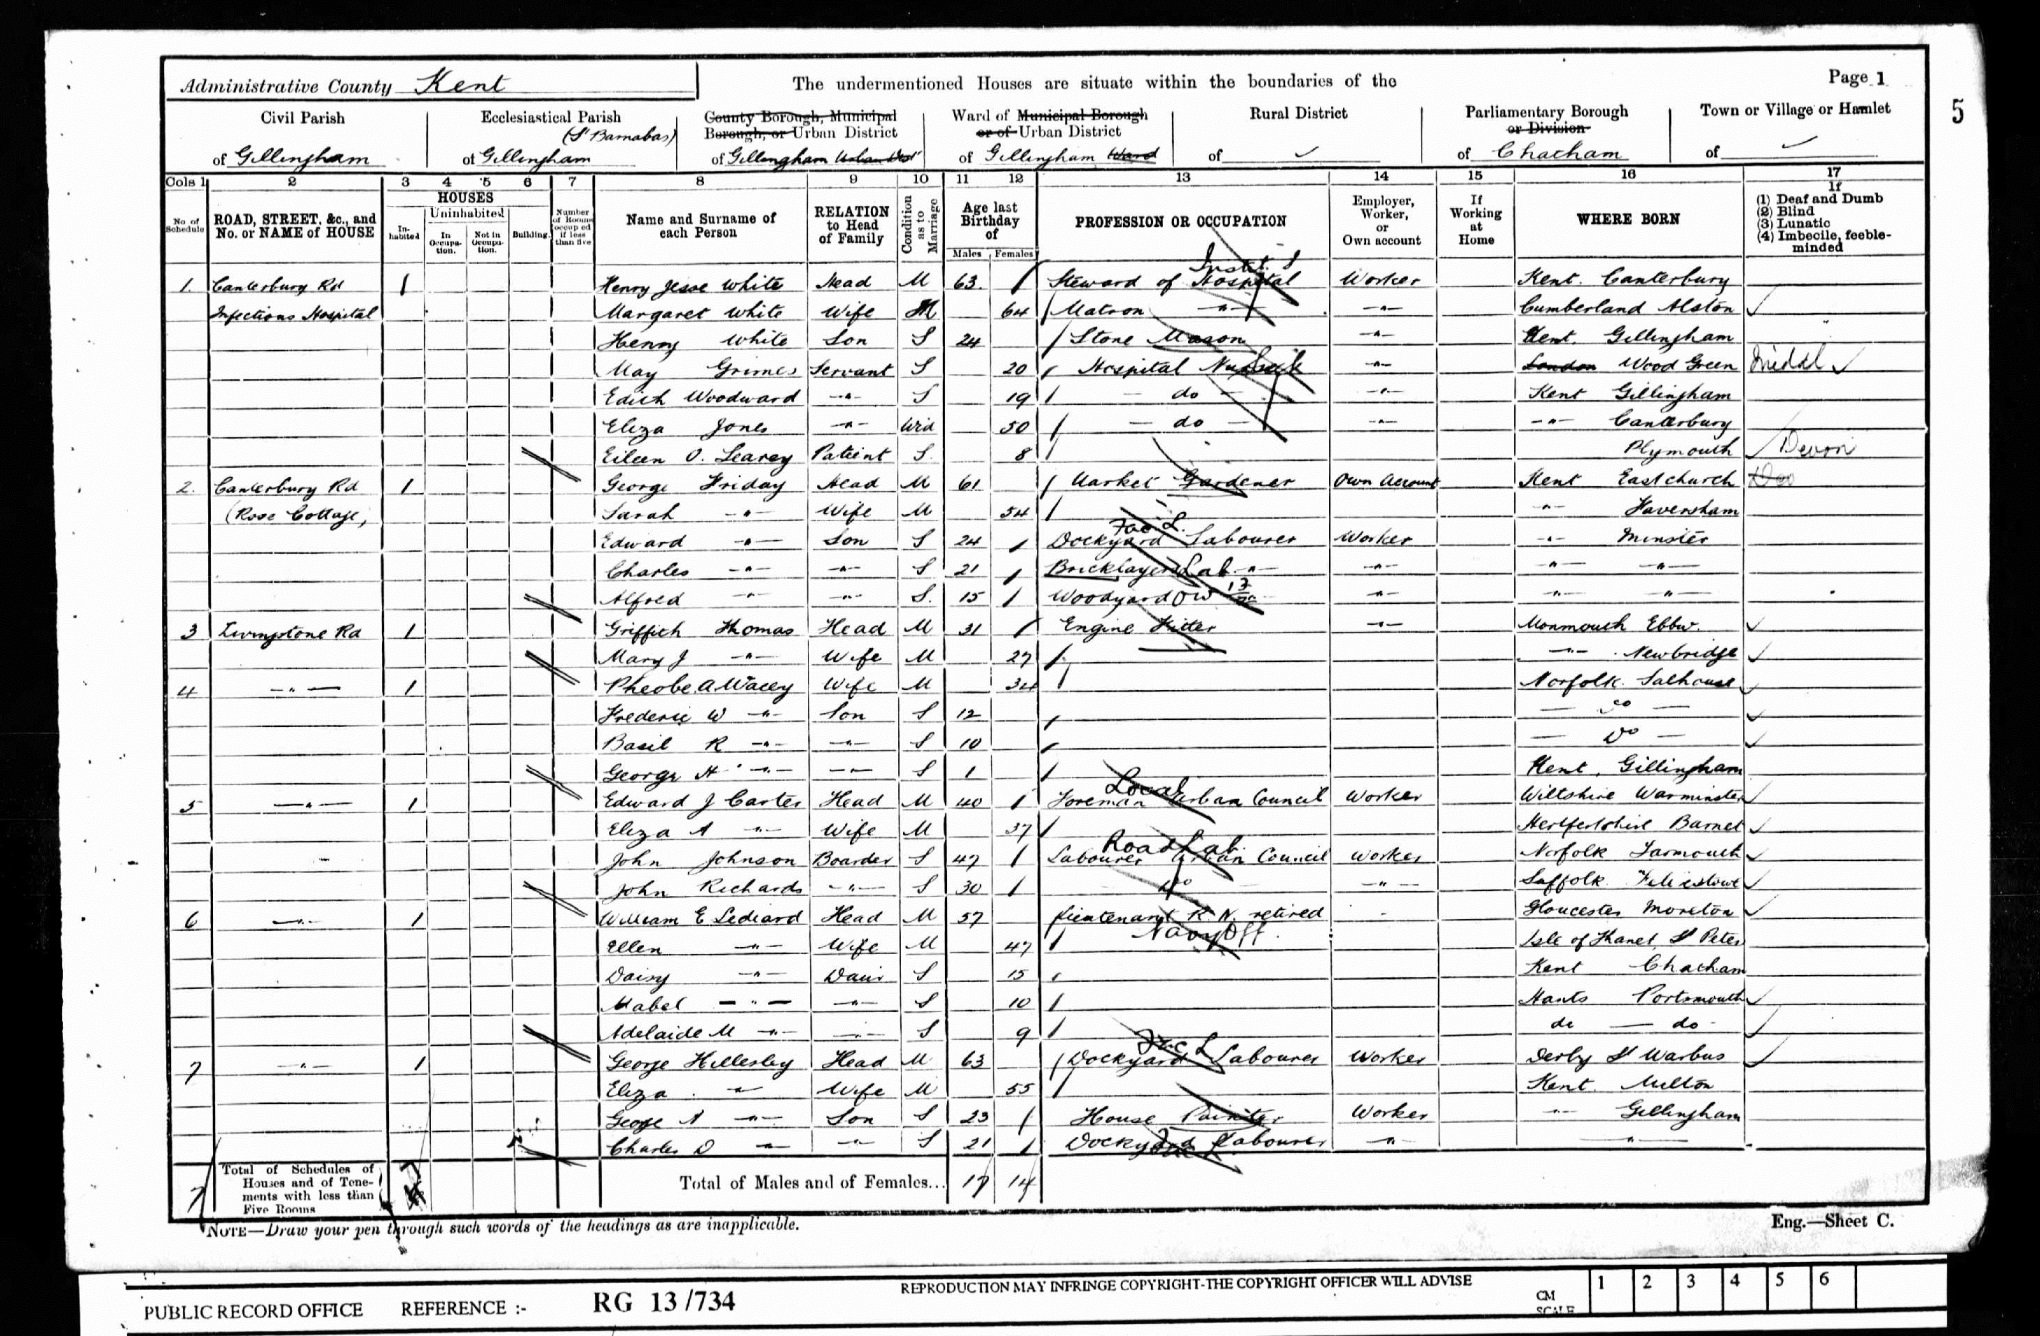 Administrative County Kent The undermentioned Houses are situate within the boundaries of the Page 1
5
Civil Parish Ecclesiastical Parish County Borough, Municipal Borough, or Urban District Ward of Municipal Borough or of Urban District Rural District Parliamentary Borough or Division Town or Village or Hamlet
(St Barnabas)
of Gillingham of Gillingham of Gillingham Urban Dist of Gillingham Ward of ✓ of Chatham of ✓
Cols 1 2 3 4 5 6 7 8 9 10 11 12 13 14 15 16 17
No of Schedule
ROAD, STREET, &c., and No. or NAME of HOUSE
HOUSES
In-habited
Uninhabited
In Occupa-tion.
Not in Occupa-tion.
Building.
Number of Rooms occupied if less than five
Name and Surname of each Person
RELATION to Head of Family
Condition as to Marriage
Age last Birthday of
Males Females
PROFESSION OR OCCUPATION
Employer, Worker, or Own account
If Working at Home
WHERE BORN
If
(1) Deaf and Dumb
(2) Blind
(3) Lunatic
(4) Imbecile, feeble-minded
1 Canterbury Rd 1 Henry Jesse White Head M 63 Steward of Hospital Worker Kent Canterbury
Infectious Hospital Margaret White Wife M 64 Matron -"- -"- Cumberland Alston ✓
Henry White Son S 24 Stone Mason -"- Kent Gillingham
May Grimes Servant S 20 Hospital Nurse -"- London Wood Green Middl ✓
Edith Woodward -"- S 19 - do - -"- Kent Gillingham
Eliza Jones -"- Wid 50 - do - -"- -"- Canterbury
Eileen O. Learey Patient S 8 Plymouth ✓ Devon
2 Canterbury Rd 1 George Friday Head M 61 Market Gardener Own Account Kent Eastchurch
(Rose Cottage) Sarah -"- Wife M 54 -"- Faversham
Edward -"- Son S 24 Dockyard Labourer Worker -"- Minster
Charles -"- -"- S 21 Bricklayers Lab -"- -"- -"- -"-
Alfred -"- -"- S 15 Woodyard -"- -"- -"-
3 Livingstone Rd 1 Griffith Thomas Head M 31 Engine Fitter -"- Monmouth Ebbw. ✓
Mary J -"- Wife M 27 -"- Newbridge ✓
4 -"- 1 Pheobe A Wacey Wife M 34 Norfolk Salhouse ✓
Frederic W -"- Son S 12 - do - ✓
Basil R -"- -"- S 10 - Do - ✓
George H -"- -"- S 1 Kent Gillingham
5 -"- 1 Edward J Carter Head M 40 Foreman Urban Council Worker Wiltshire Warminster ✓
Eliza A -"- Wife M 37 Hertfordshire Barnet ✓
John Johnson Boarder S 47 Labourer Urban Council Worker Norfolk Yarmouth ✓
John Richards -"- S 30 Do -"- Suffolk Felixstowe ✓
6 -"- 1 William E Lediard Head M 57 Lieutenant R.N. retired Gloucester Moreton ✓
Ellen -"- Wife M 47 Isle of Thanet St Peter
Daisy -"- Daur S 15 Kent Chatham
Mabel -"- -"- S 10 Hants Portsmouth ✓
Adelaide M -"- -"- S 9 do — do ✓
7 -"- 1 George Hillersley Head M 63 Dockyard Labourer Worker Derby St Warbus ✓
Eliza -"- Wife M 55 Kent Milton
George A -"- Son S 23 House Painter Worker -"- Gillingham
Charles D -"- -"- S 21 Dockyard Labourer -"- -"-
7 Total of Schedules of Houses and of Tenements with less than Five Rooms Total of Males and of Females... 17 14
NOTE—Draw your pen through such words of the headings as are inapplicable. Eng.—Sheet C.
REPRODUCTION MAY INFRINGE COPYRIGHT-THE COPYRIGHT OFFICER WILL ADVISE
PUBLIC RECORD OFFICE REFERENCE :- RG 13/734 CM SCALE 1 2 3 4 5 6